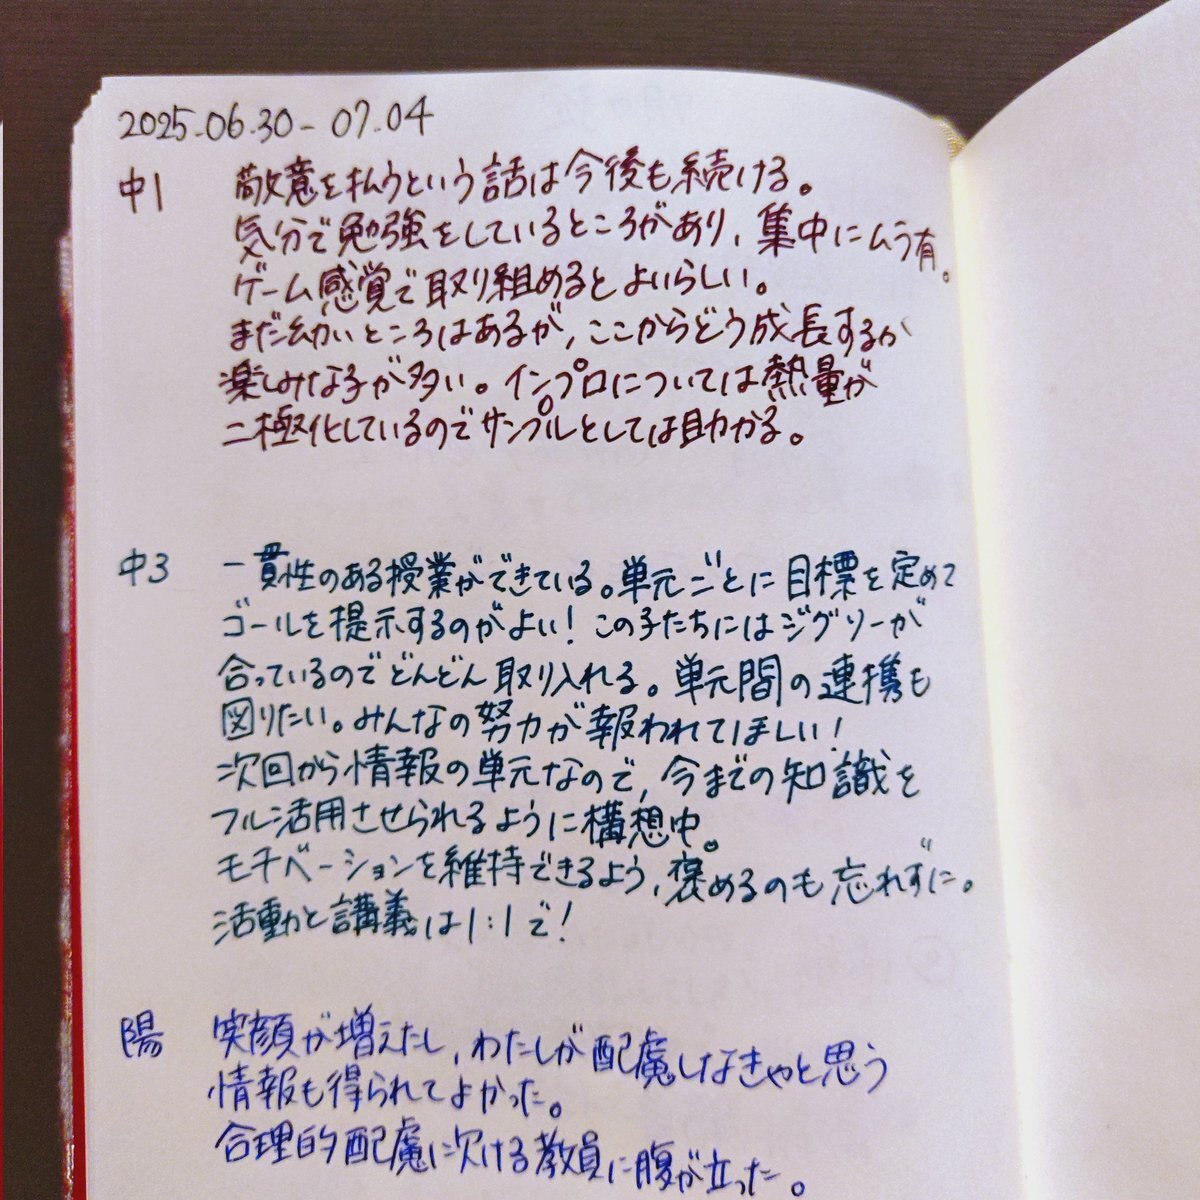 2025.06.30 - 07.04
中1 敬意を払うという話は今後も続ける。
気分で勉強をしているところがあり、集中にムラ有。
ゲーム感覚で取り組めるとよいらしい。
まだ幼いところはあるが、ここからどう成長するか
楽しみな子が多い。インプロについては熱量が
二極化しているのでサンプルとしては助かる。
中3 一貫性のある授業ができている。単元ごとに目標を定めて
ゴールを提示するのがよい！この子たちにはジグソーが
合っているのでどんどん取り入れる。単元間の連携も
図りたい。みんなの努力が報われてほしい！
次回から情報の単元なので、今までの知識を
フル活用させられるように構想中。
モチベーションを維持できるよう、褒めるのも忘れずに。
活動と講義は1:1で！
陽 笑顔が増えたし、わたしが配慮しなきゃと思う
情報も得られてよかった。
合理的配慮に欠ける教員に腹が立った。